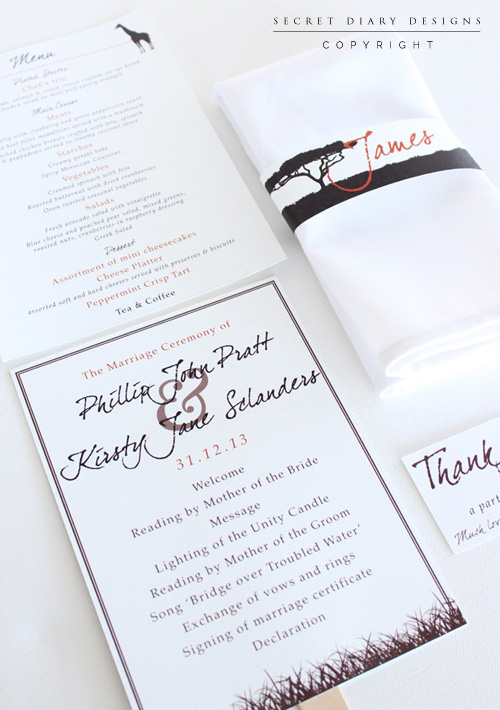 SECRET DIARY DESIGNS
COPYRIGHT
Menu
Plated Starter
Chef's trio
Main Course
Meats
Starches
Creamy potato bake
Spicy Moroccan Couscous
Vegetables
Creamed spinach with fria
Roasted butternut with dried cranberries
Oven roasted seasonal vegetables
Salads
Fresh avocado salad with vinaigrette
Blue cheese and poached pear salad, mixed greens,
roasted nuts, cranberries in raspberry dressing
Greek Salad
Dessert
Assortment of mini cheesecakes
Cheese Platter
assorted soft and hard cheeses served with preserves & biscuits
Peppermint Crisp Tart
Tea & Coffee
James
The Marriage Ceremony of
Phillip John Pratt
&
Kirsty Jane Sclanders
31.12.13
Welcome
Reading by Mother of the Bride
Message
Lighting of the Unity Candle
Reading by Mother of the Groom
Song 'Bridge over Troubled Water'
Exchange of vows and rings
Signing of marriage certificate
Declaration
Thank
a par
Much